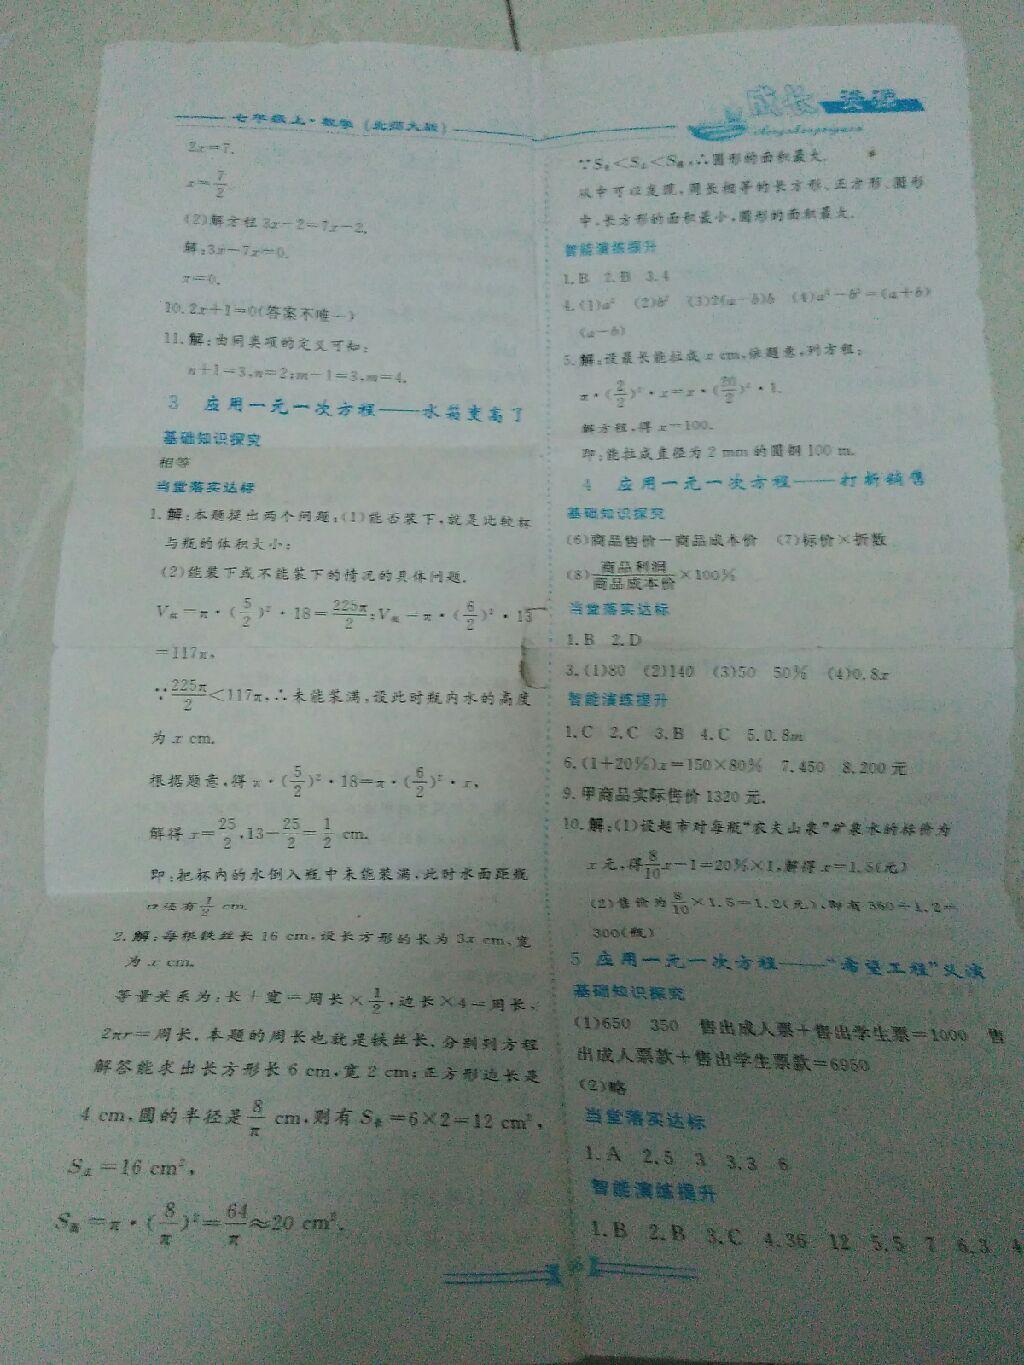 七年级上·数学(北师大版)
2x=7.
x=7/2
(2)解方程 3x-2=7x-2.
解:3x-7x=0.
x=0.
10.2x+1=0(答案不唯一)
11.解:由同类项的定义可知:
n+1=3,n=2;m-1=3,m=4.
3 应用一元一次方程——水箱变高了
基础知识探究
相等
当堂落实达标
1.解:本题提出两个问题:(1)能否装下,就是比较杯
与瓶的体积大小;
(2)能装下或不能装下的情况的具体问题.
V瓶=π·(5/2)²·18=225π/2;V=π·(6/2)²·13
=117π,
∵225π/2<117π,∴未能装满,设此时瓶内水的高度
为 x cm.
根据题意,得π·(5/2)²·18=π·(6/2)²·x,
解得 x=25/2,13-25/2=1/2 cm.
即:把杯内的水倒入瓶中未能装满,此时水面距瓶
口还有1/2 cm.
2.解:每根铁丝长 16 cm,设长方形的长为 3x cm,宽
为 x cm.
等量关系为:长+宽=周长×1/2,边长×4=周长、
2πr=周长。本题的周长也就是铁丝长、分别列方程
解答能求出长方形长 6 cm,宽 2 cm;正方形边长是
4 cm,圆的半径是8/π cm,则有 S长=6×2=12 cm²,
S正=16 cm²,
S圆=π·(8/π)²=64/π≈20 cm².
成长资源
∵S长<S正<S圆,∴圆形的面积最大.
从中可以发现,周长相等的长方形、正方形、圆形
中,长方形的面积最小,圆形的面积最大.
智能演练提升
1.B 2.B 3.4
4.(1)a² (2)b² (3)2(a-b)b (4)a²-b²=(a+b)
(a-b)
5.解:设最长能拉成 x cm,依题意,列方程:
π·(2/2)²·x=π·(20/2)²·1.
解方程,得 x=100.
即:能拉成直径为 2 mm 的圆钢 100 m.
4 应用一元一次方程——打折销售
基础知识探究
(6)商品售价-商品成本价 (7)标价×折数
(8)商品利润/商品成本价×100%
当堂落实达标
1.B 2.D
3.(1)80 (2)140 (3)50 50% (4)0.8x
智能演练提升
1.C 2.C 3.B 4.C 5.0.8m
6.(1+20%)x=150×80% 7.450 8.200 元
9.甲商品实际售价 1320 元.
10.解:(1)设超市对每瓶“农夫山泉”矿泉水的标价为
x 元,得8/10x-1=20%×1,解得 x=1.5(元)
(2)售价为8/10×1.5=1.2(元),即有 360÷1.2=
300(瓶)
5 应用一元一次方程——“希望工程”义演
基础知识探究
(1)650 350 售出成人票+售出学生票=1000 售
出成人票款+售出学生票款=6950
(2)略
当堂落实达标
1.A 2.5 3 3.3 6
智能演练提升
1.B 2.B 3.C 4.36 12 5.5 7 6.3 4